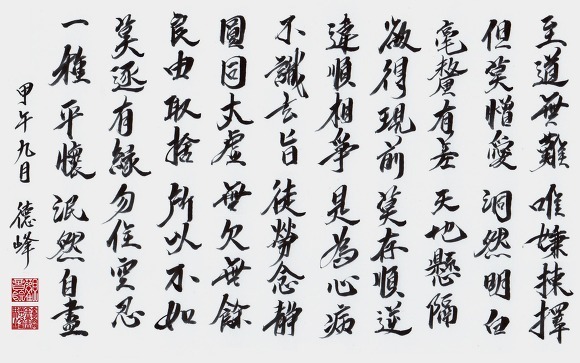 至道無難唯嫌揀擇
但莫憎愛洞然明白
毫釐有差天地懸隔
欲得現前莫存順逆
違順相爭是為心病
不識玄旨徒勞念靜
圓同太虛無欠無餘
良由取捨所以不如
莫逐有緣勿住空忍
一種平懷泯然自盡
甲午九月德峰